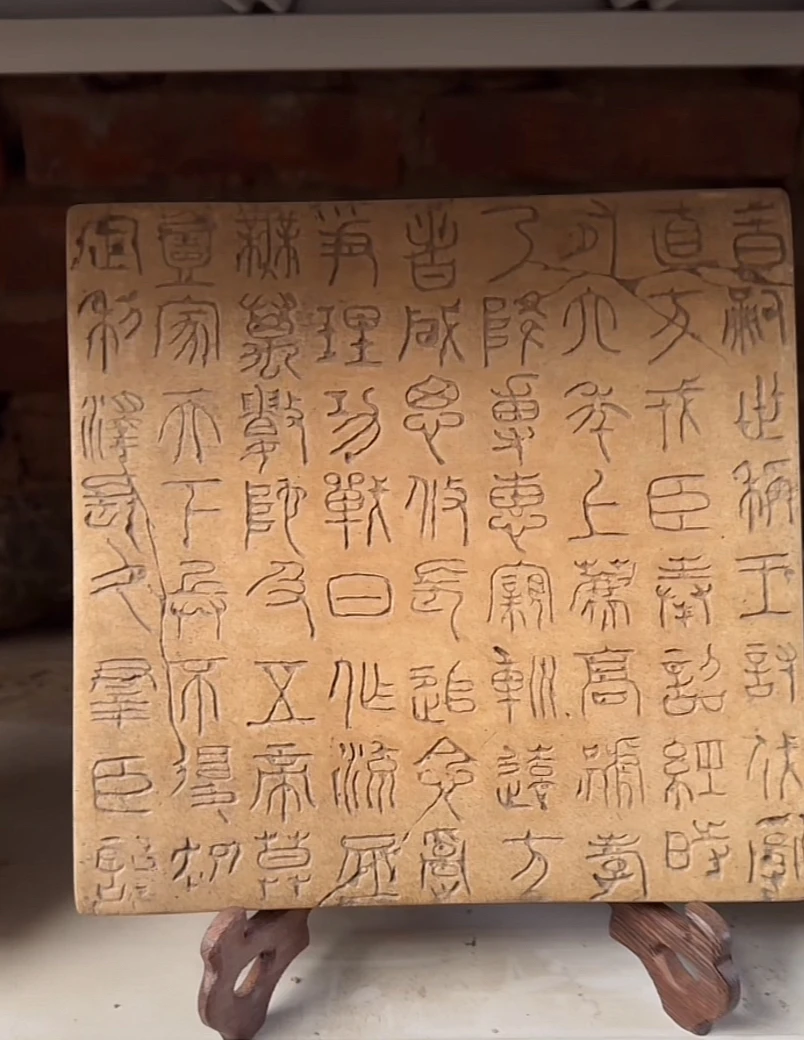 昔嗣世稱王討伐亂
直方戎臣奉詔經時
有六年上薦高號孝
乃降專惠親巡遠方
者咸思攸長追念亂
爭理功戰日作流血
無萬數陀及五帝莫
壹家天下兵不復起
定利澤長久羣臣誦